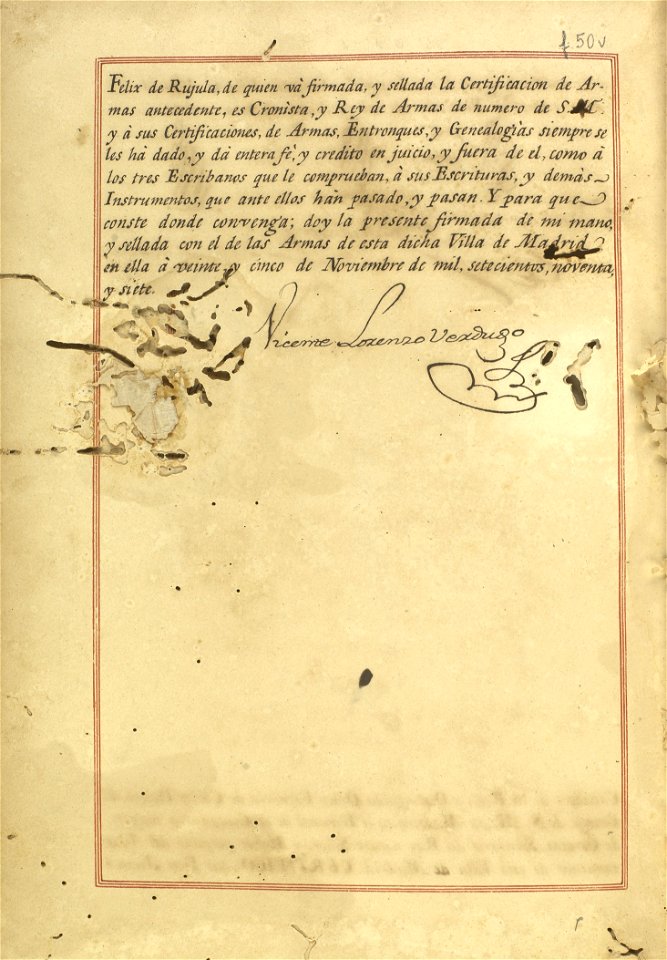 f 50v
Felix de Rujula, de quien và firmada, y sellada la Certificacion de Ar-
mas antecedente, es Cronista, y Rey de Armas de numero de S. M.
y à sus Certificaciones, de Armas, Entronques, y Genealogìas siempre se
les hà dado, y dà entera fè, y credito en juicio, y fuera de el, como à
los tres Escribanos que le comprueban, à sus Escrituras, y demàs
Instrumentos, que ante ellos hàn pasado, y pasan. Y para que
conste donde convenga; doy la presente firmada de mi mano,
y sellada con el de las Armas de esta dicha Villa de Madrid
en ella à veinte y cinco de Noviembre de mil, setecientos, noventa,
y siete.
Vicente Lorenzo Verdugo